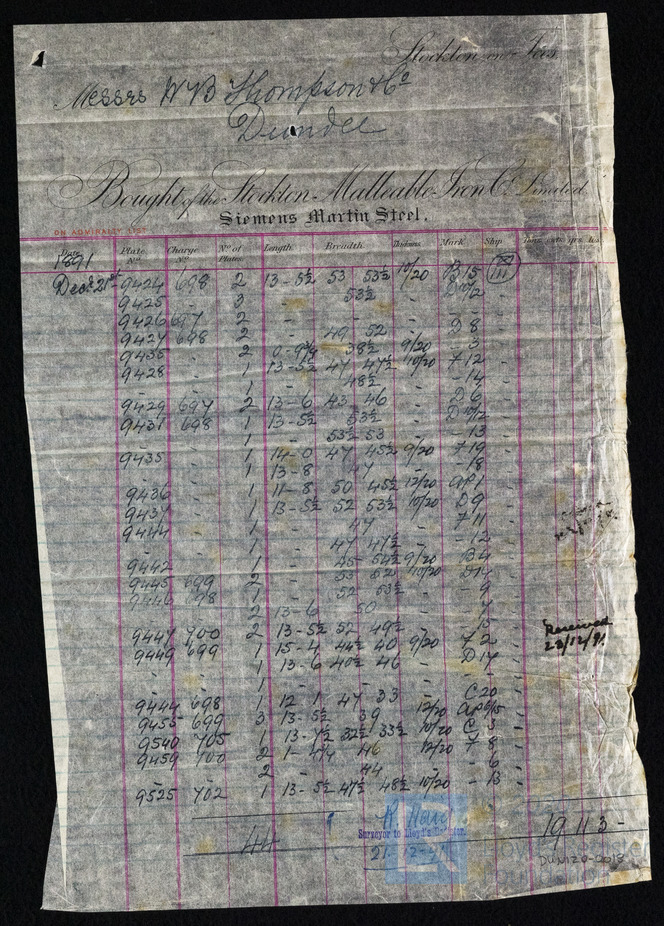 Stockton on Tees
Messrs W B Thompson & Co
Dundee
Bought of the Stockton Malleable Iron Co. Limited
Siemens Martin Steel.
ON ADMIRALTY LIST
Date Plate No. Charge No. No. of Plates Length. Breadth. Thickness. Mark. Ship
1891
Dec 21st 9424 698 2 13-5½ 53 53½ 10/20 B15
9425 - 3 - 53½ - D10/2
9426 697 2 - - -
9427 698 2 - 49 52 - D8
9438 - 2 38½ 9/20 - 3
9428 - 1 13-5½ 47 47½ 10/20 F12
- - 1 - 48½ - - 14
9429 697 2 13-6 43 46 - D6
9431 698 1 13-5½ 53½ - D10/2
- - 1 - 53½ 53 - - 13
9435 - 1 14-0 47 45½ 9/20 F19
1 13-8 47 - - 18
9436 - 1 11-8 50 45½ 12/20 AP1
9437 - 1 13-5½ 52 53½ 10/20 D9
9444 - 1 - 47 - F11
- - 1 - 47 47½ - - 12
9442 - 1 - 45 54½ 9/20 B4
9445 699 2 - 53 52 10/20 D14
9446 698 1 - 52 53½ - - 9
- - 2 13-6 50 - - 7
9447 700 2 13-5½ 52 49½ - - 15
9449 699 1 15-4 44½ 40 9/20 F2
- - 1 13-6 40½ 46 - D17
- - 1 - - - -
9444 698 1 12 1 47 33 - C20
9455 699 3 13-5½ 39 12/20 AP6/15
9540 705 1 13-7½ 32½ 33½ 10/20 C3
9459 700 2 46 12/20 F8
- - 2 - 44 - - 6
9525 702 1 13-5½ 47½ 48½ 10/20 - 13
Received
23/12/91
44
19 11 3 -
Surveyor to Lloyd's Register.
21-12-91
DUN120-0018